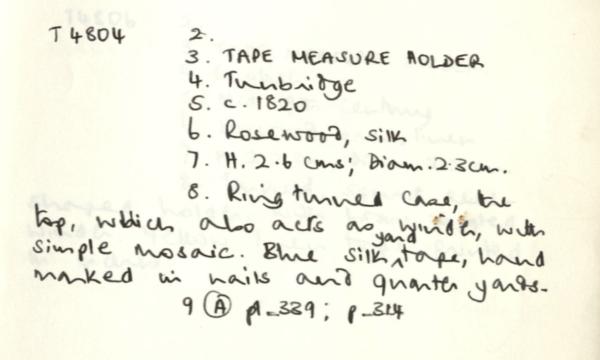 T4804 2.
3. TAPE MEASURE HOLDER
4. Tunbridge
5. c. 1820
6. Rosewood, silk
7. H. 2.6 cms; Diam. 2.3cm.
8. Ring turned case, the
top, which also acts as winder, with
simple mosaic. Blue silk yard tape, hand
marked in nails and quarter yards.
9 Ⓐ pl. 339; p. 314